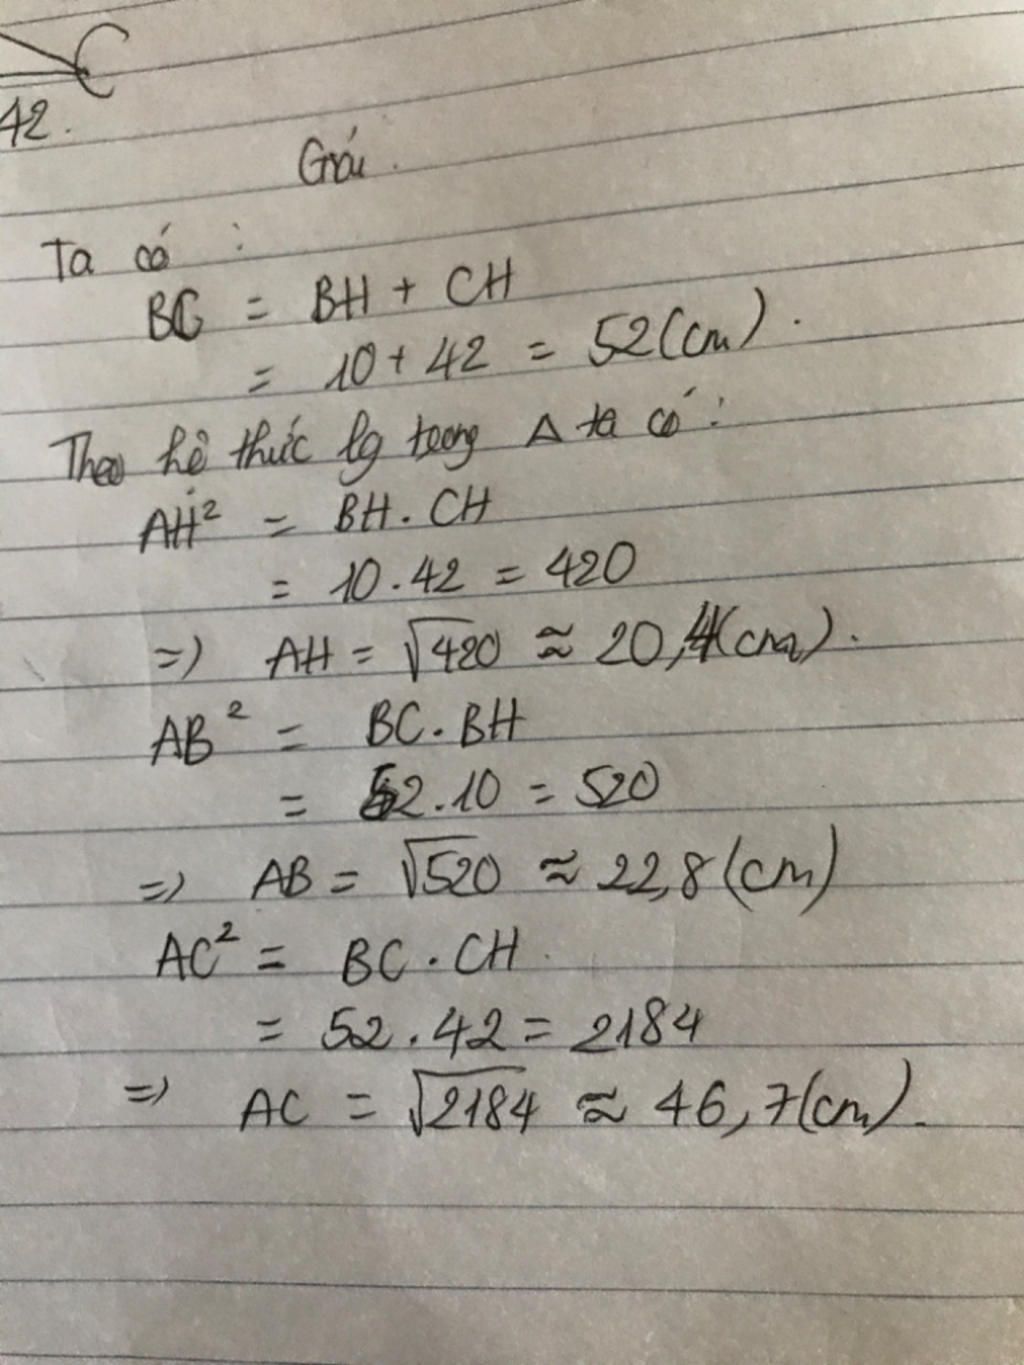 C
42.
Giải.
Ta có :
BC = BH + CH
= 10 + 42 = 52 (cm).
Theo hê thức lg trong Δ ta có :
AH² = BH . CH
= 10 . 42 = 420
=> AH = √420 ≈ 20,4 (cm).
AB² = BC . BH
= 52 . 10 = 520
=> AB = √520 ≈ 22,8 (cm)
AC² = BC . CH.
= 52 . 42 = 2184
=> AC = √2184 ≈ 46,7 (cm).